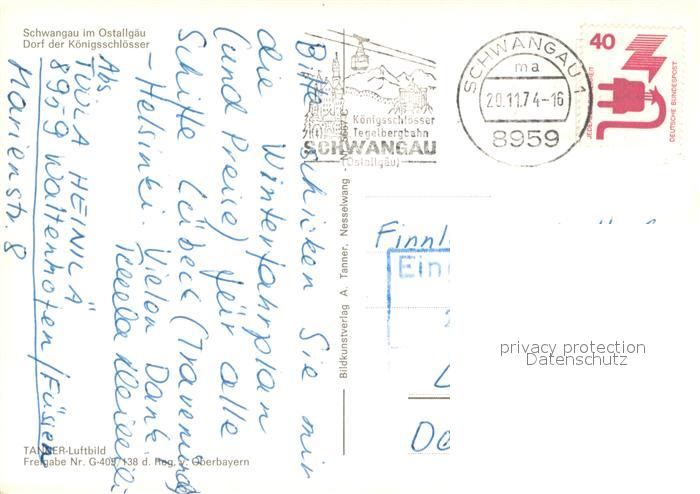 Schwangau im Ostallgäu
Dorf der Königsschlösser
Bitte schicken Sie mir
die Winterfahrplan
(und Preise) für alle
Schiffe Lübeck (Travemünde)
- Helsinki. Vielen Dank
Tuula Heinilä
Abs
TUULA HEINILÄ
8959 Waltenhofen/Füssen
Marienstr. 8
TANNER-Luftbild
Freigabe Nr. G-40 /138 d. Reg. v. Oberbayern
Bildkunstverlag A. Tanner, Nesselwang -
Königsschlösser
Tegelbergbahn
SCHWANGAU
(Ostallgäu)
SCHWANGAU 1
ma
20.11.74-16
8959
40
JEDERZEIT SICHERHEIT
DEUTSCHE BUNDESPOST
Finnl
Ein
Do
privacy protection
Datenschutz